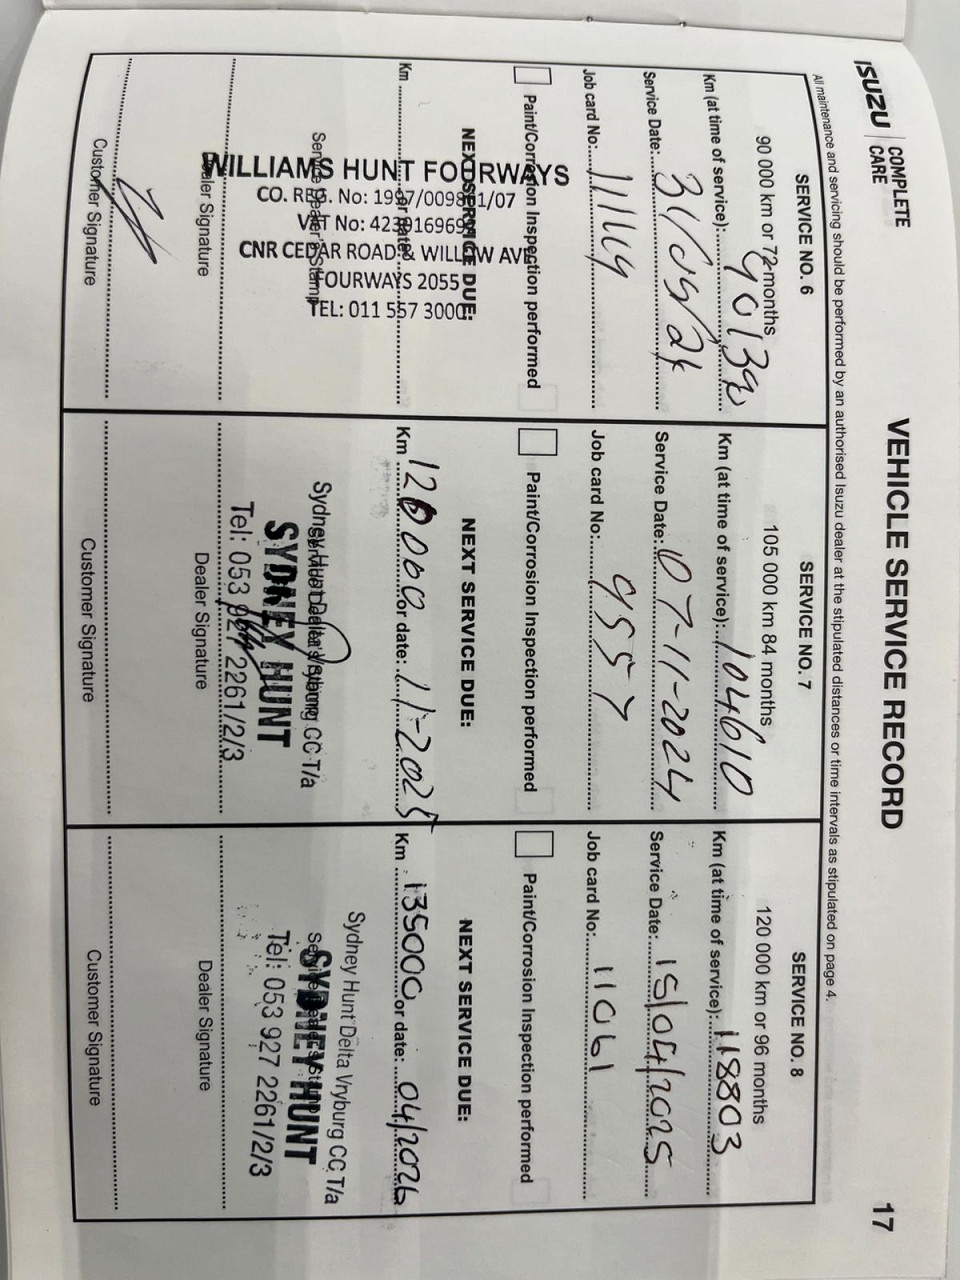 ISUZU | COMPLETE CARE
VEHICLE SERVICE RECORD
17
All maintenance and servicing should be performed by an authorised Isuzu dealer at the stipulated distances or time intervals as stipulated on page 4.
SERVICE NO. 6
90 000 km or 72 months
Km (at time of service):
Service Date: 31/05/24
Job card No:
Paint/Corrosion Inspection performed
NEXT SERVICE DUE:
Km or date:
Service Dealer's Stamp
WILLIAMS HUNT FOURWAYS
CO. REG. No: 1997/009891/07
VAT No:
CNR CEDAR ROAD & WILLOW AVE
FOURWAYS 2055
TEL: 011 557 3000
Dealer Signature
Customer Signature
SERVICE NO. 7
105 000 km 84 months
Km (at time of service): 104610
Service Date: 07-11-2024
Job card No: 9557
Paint/Corrosion Inspection performed
NEXT SERVICE DUE:
Km 120000 or date: 11-2025
Sydney Hunt Delta Vryburg CC T/a
SYDNEY HUNT
Tel: 053 927 2261/2/3
Dealer Signature
Customer Signature
SERVICE NO. 8
120 000 km or 96 months
Km (at time of service): 118803
Service Date: 15/04/2025
Job card No: 11061
Paint/Corrosion Inspection performed
NEXT SERVICE DUE:
Km 135000 or date: 04/2026
Sydney Hunt Delta Vryburg CC T/a
SYDNEY HUNT
Tel: 053 927 2261/2/3
Dealer Signature
Customer Signature